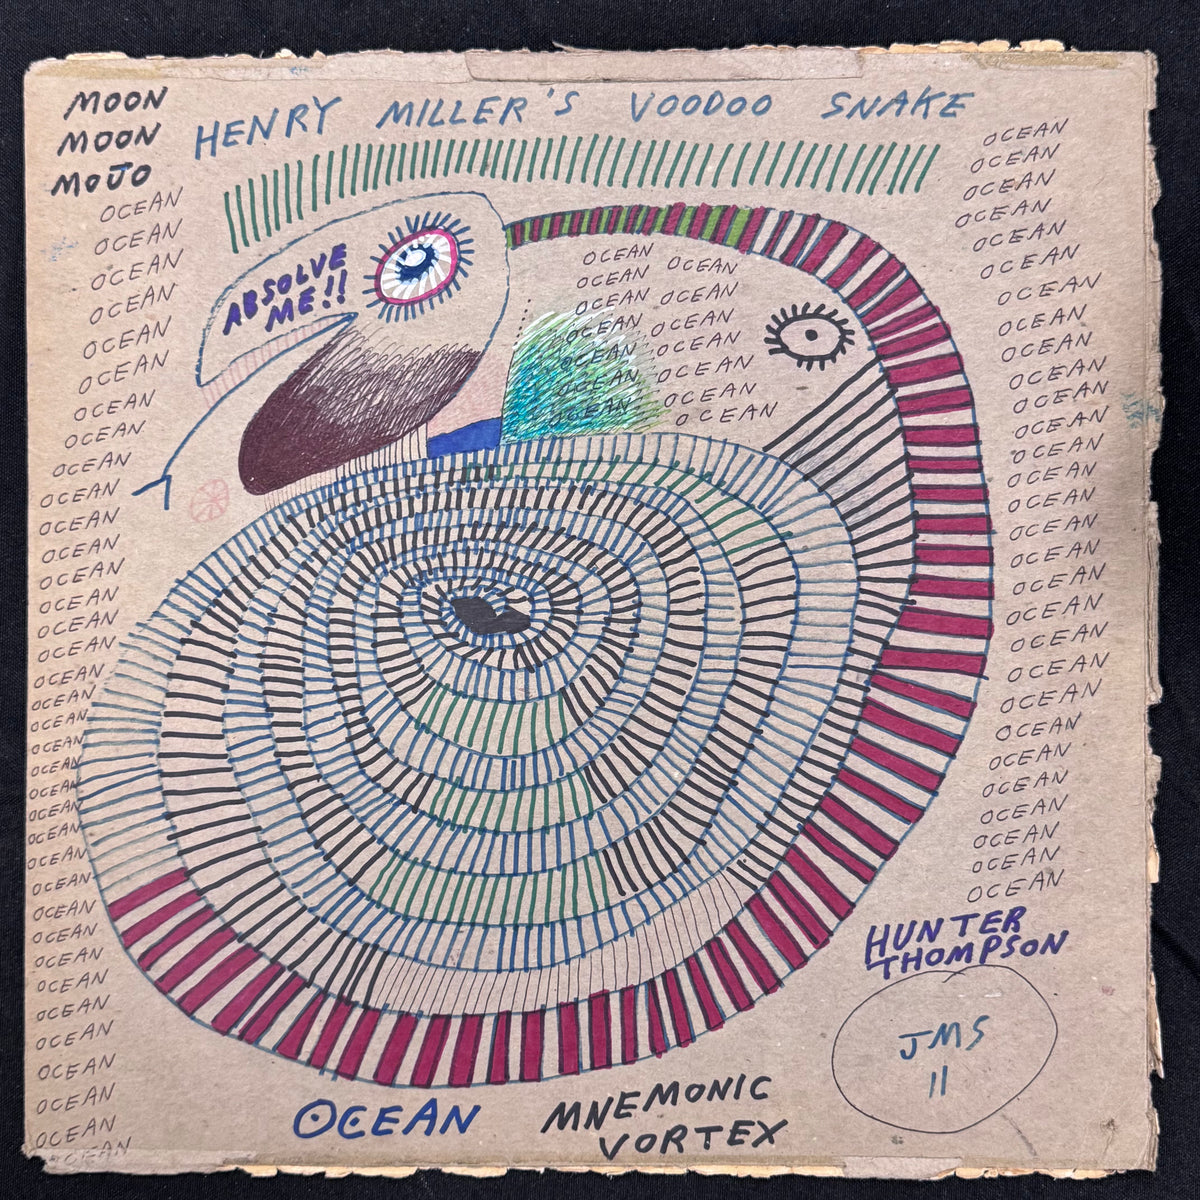 MOON
MOON
MOJO
HENRY MILLER'S VOODOO SNAKE
OCEAN
OCEAN
OCEAN
OCEAN
OCEAN
OCEAN
OCEAN
OCEAN
OCEAN
OCEAN
OCEAN
OCEAN
OCEAN
OCEAN
OCEAN
OCEAN
OCEAN
OCEAN
OCEAN
OCEAN
OCEAN
OCEAN
OCEAN
OCEAN
OCEAN
OCEAN
OCEAN
OCEAN
OCEAN
OCEAN
OCEAN
OCEAN
OCEAN
OCEAN
OCEAN
OCEAN
ABSOLVE
ME!!
OCEAN
OCEAN
OCEAN
OCEAN
OCEAN
OCEAN
OCEAN
OCEAN
OCEAN
OCEAN
OCEAN
OCEAN
OCEAN
OCEAN
OCEAN
OCEAN
OCEAN
OCEAN
OCEAN
OCEAN
OCEAN
OCEAN
OCEAN
OCEAN
OCEAN
OCEAN
OCEAN
OCEAN
OCEAN
OCEAN
OCEAN
OCEAN
OCEAN
OCEAN
OCEAN
OCEAN
OCEAN
OCEAN
OCEAN
OCEAN
OCEAN
OCEAN
OCEAN
HUNTER
THOMPSON
JMS
11
OCEAN MNEMONIC
VORTEX